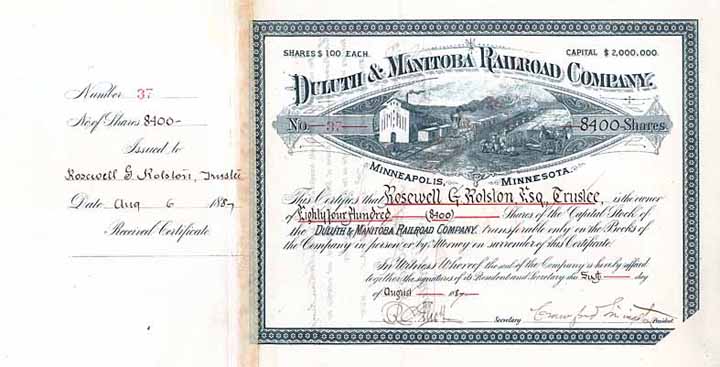 Number 37
No. of Shares 8400-
Issued to
Rosewell G. Rolston, Trustee
Date Aug 6 1887
Received Certificate
SHARES $ 100 EACH. CAPITAL $ 2,000,000.
DULUTH & MANITOBA RAILROAD COMPANY.
No. 37 8400 Shares.
MINNEAPOLIS, MINNESOTA.
This Certifies that Rosewell G. Rolston, Esq., Trustee, is the owner
of Eighty four Hundred (8400) Shares of the Capital Stock of
the DULUTH & MANITOBA RAILROAD COMPANY. transferable only on the Books of
the Company in person or by Attorney on surrender of this Certificate.
In Witness Whereof the seal of the Company is hereby affixed
together the signatures of its President and Secretary this Sixth day
of August 1887
Secretary President